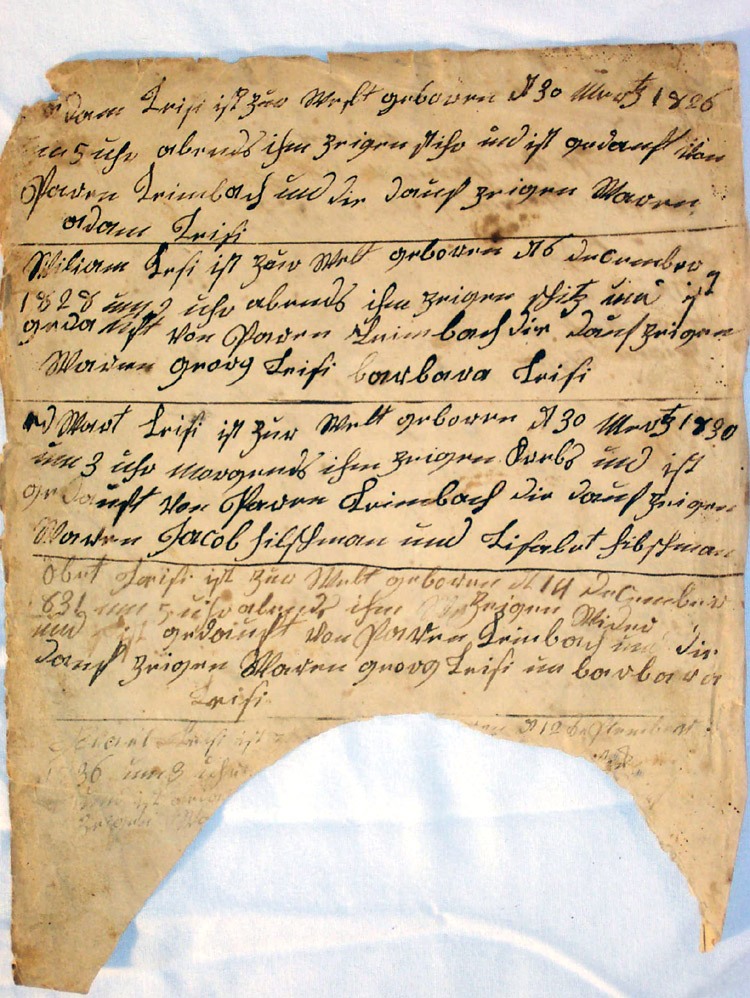 adam Leisi ist zur Welt geboren d 30 Mertz 1826
um 5 uhr abends ihm Zeigen stihr und ist gedauft von
Paren Leimbach und die dauf zeigen Waren
adam Leisi
Wiliam Lesi ist zur Welt geboren d 6 december
1828 um uhr abends ihm zeigen schitz und ist
gedauft von Paren Leimbach die dauf zeigen
Waren georg Leisi barbara Leisi
Leisi ist zur Welt geboren d 30 Mertz 1830
um 3 uhr morgends ihm zeigen Krebs und ist
gedauft von Paren Leimbach die dauf zeigen
Waren Jacob hilschman und Lisabet hibschman
Leisi ist zur Welt geboren d 14 december
831 um 5 uhr abends ihm Zeigen Wider
und ist gedauft von Paren Leimbach und die
dauf zeigen Waren georg Leisi un barbara
Leisi
Leisi ist d 12 September
36 um 3 uhr